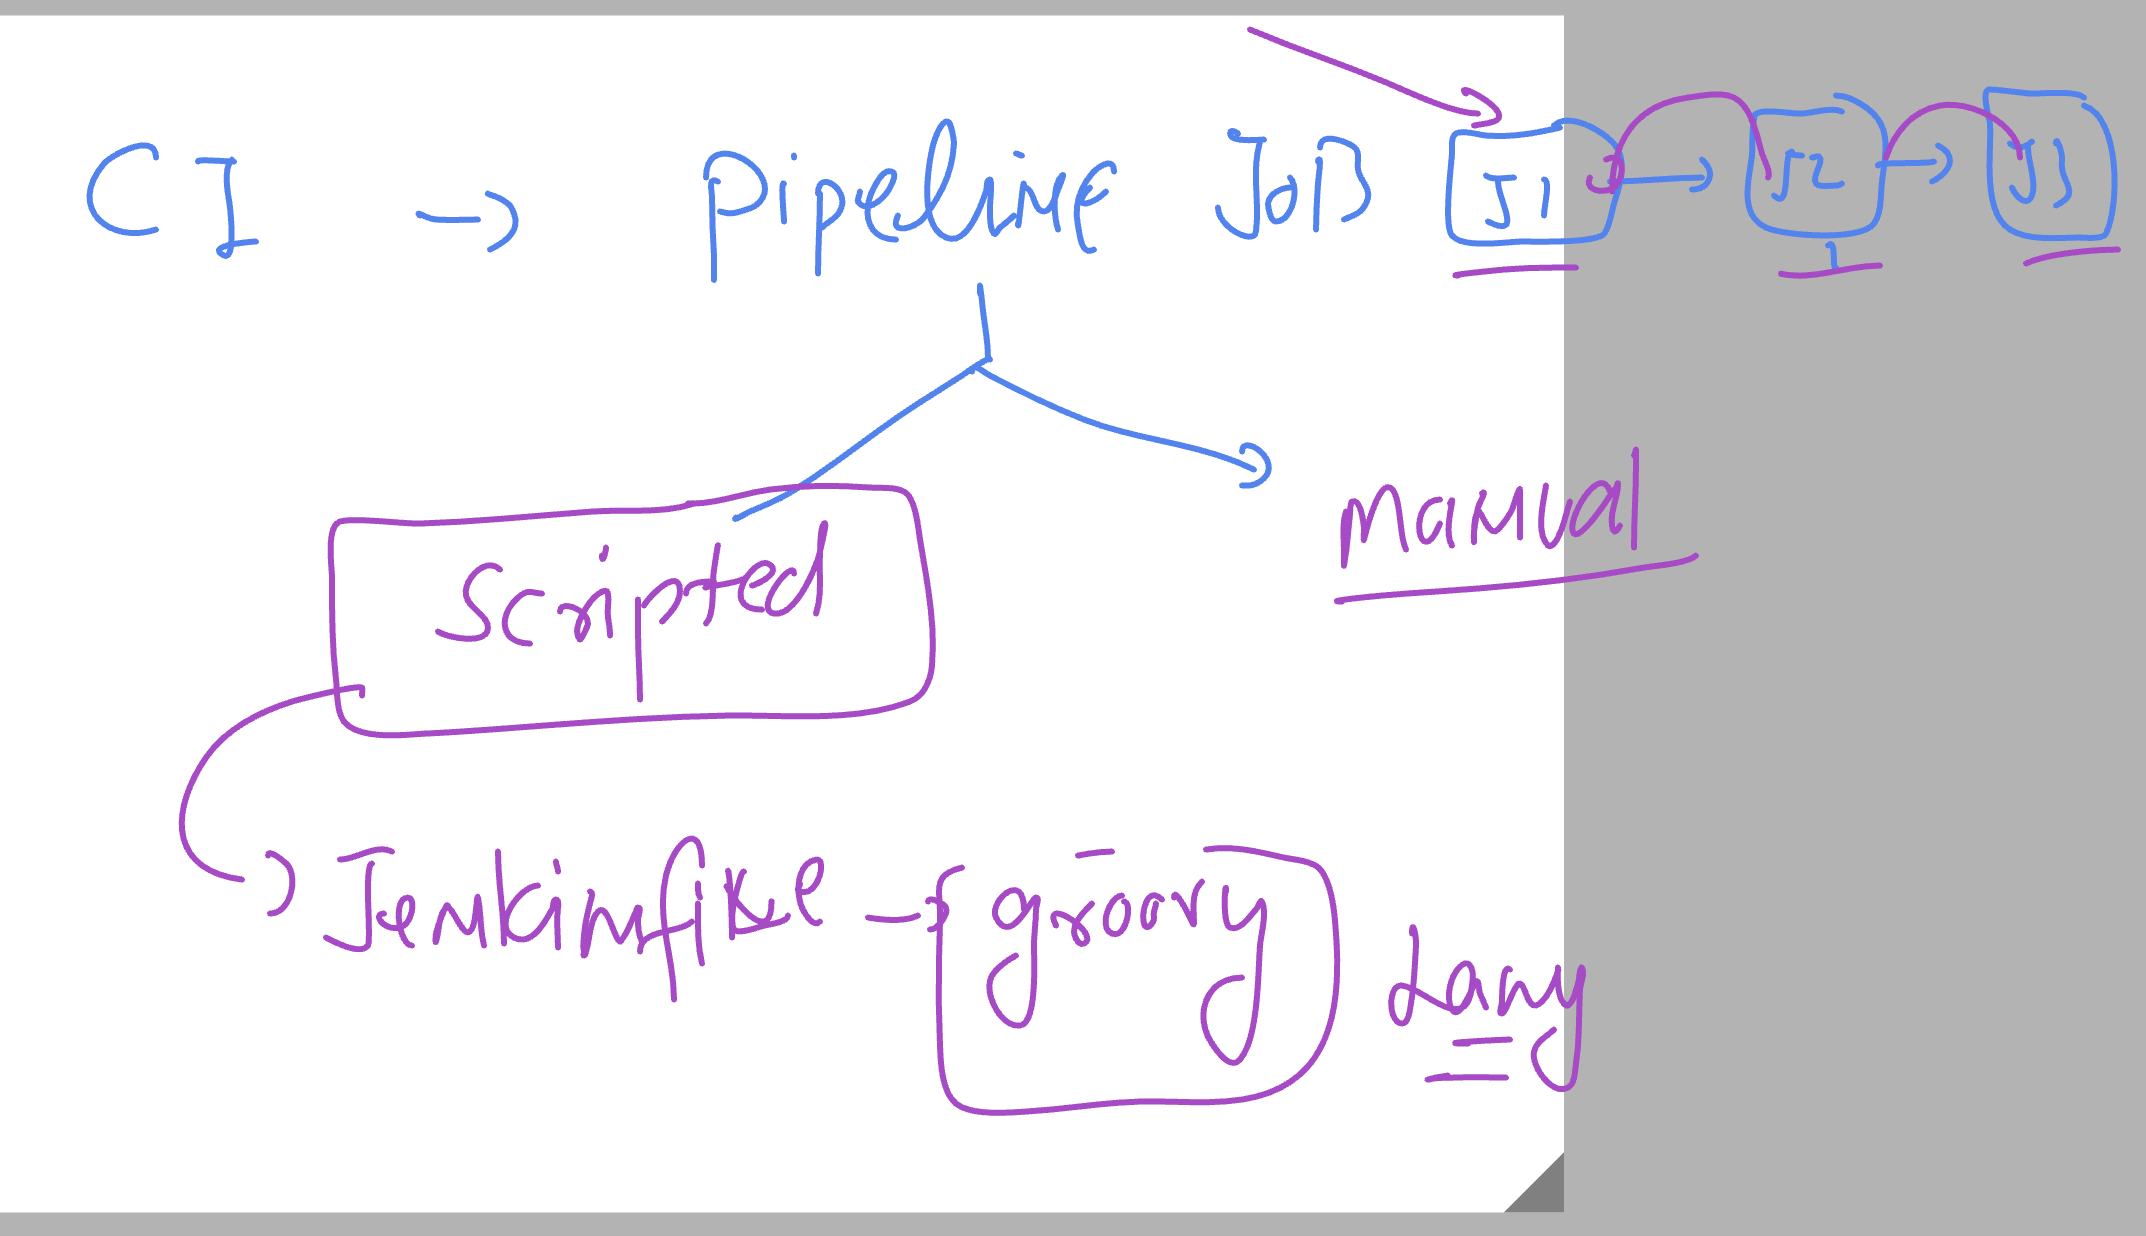 CI → Pipeline Job J1 → J2 → J3
Scripted
Manual
Jenkinsfile → groovy Lang